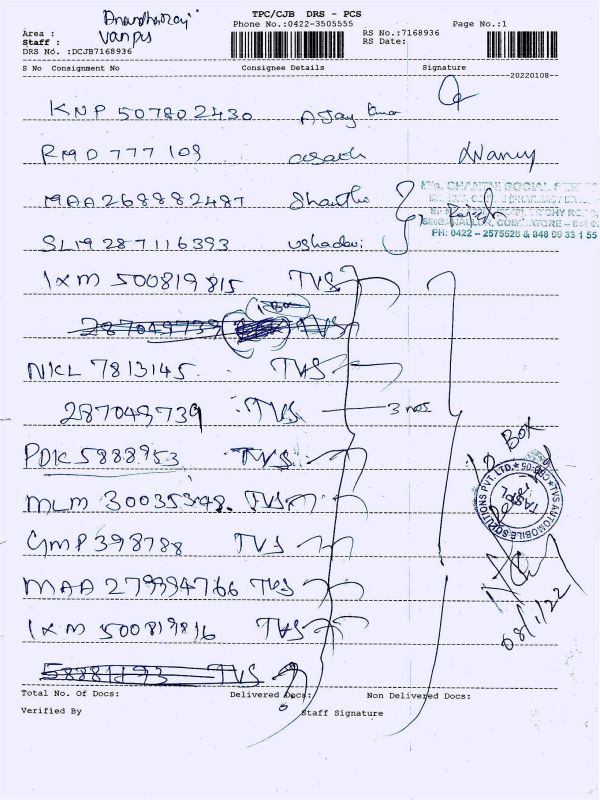 TPC/CJB DRS - PCS
Phone No.:0422-3505555
Page No.:1
Area :
Staff :
DRS No: :DCJB7168936
RS No.:7168936
RS Date:
S No Consignment No Consignee Details Signature
20220108
KNP 507802430 Ajay Kumar
RMD 777 109
MAA 268882487 Shantha
SLM 287116393 Ushadevi
IXM 500819815 TVS
287049739 1 Box TVS
NKL 7813145 TVS
287049739 TVS 3 nos
PDK 5888953 TVS
MLM 30035348 TVS
GMP 398788 TVS
MAA 279994766 TVS
IXM 500819816 TVS
58881193 TVS
PH: 0422 - 2575528 & 848 09 33 1 55
Box
TVS AUTOMOBILE SOLUTIONS PVT. LTD.
TASPL
08/1/22
Total No. Of Docs: Delivered Docs: Non Delivered Docs:
Verified By Staff Signature